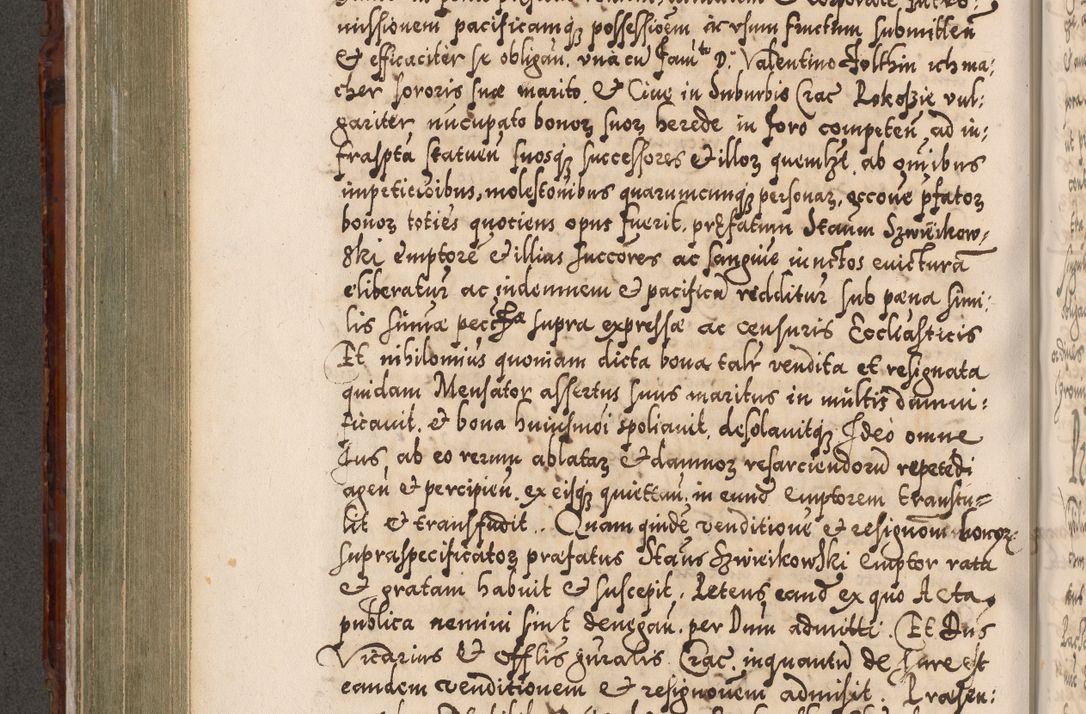 missionem pacificamq possessioem in vsum fructum submitten
& efficaciter se obligau. vna cu Fam to D. Valentino Folthin ich ma:
cher sororis suæ marito. & Ciue in Suburbio Crac Rokoszie vul:
gariter nucupato bonoꝝ suoꝝ herede in foro competen ad in:
fraspta statuen suosq successores & illoꝝ quemlꝫt ab omibus
impeticioibus, molestonibus quarumcunq personaꝝ, occoue pfatoꝝ
bonoꝝ toties quociens opus fuerit. prefatum Staum Szwieikow,
ski emptore & illias succores ac sanguie iunctos euictura
eliberatur ac indemnem & pacifica redditur sub pæna simi:
lis sumæ supra expressæ ac censuris Ecclasticis
Et nihilomius quoniam dicta bona talr vendita et resignata
quidam Mensator assertus suus maritus in multis damni:
ficauit. & bona huiusmoi spoliauit. desolauitq Ideo omne
Ius, ab eo rerum ablataꝝ & damnoꝝ resarciendoru repetedi
agen & percipien. ex eisq quiettau. in eund emptorem transtu=
lit & transfudit. Quam quide venditione & resignoem bonoꝝ
supraspecificatoꝝ præfatus Staus Szwieikowski emptor rata
& gratam habuit & suscepit. Petens eand ex quo Acta
publica nemini sint denegau. per Dnm admitti. Et Dns
Vicarius & Offlis gnralis Crac. inquantu de Iure est
eandem venditionem & resignouem admisit. Præsen: